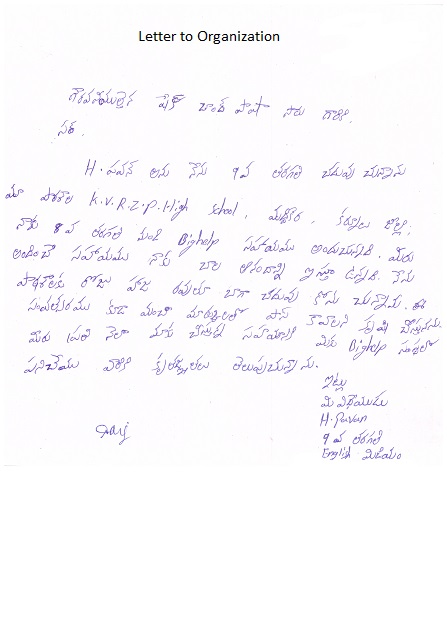 Letter to Organization
గౌరవనీయులైన షేక్ బాబ్ పాషా సారు గారికి.
సర్.
H. పవన్ అను నేను 9వ తరగతి చదువు చున్నాను
మా పాఠశాల K.V.R.Z.P.High School, కర్నూలు జిల్లా.
నాకు 8వ తరగతి నుండి Bighelp సహాయము అందుచున్నది. మీరు
అందించే సహాయము నాకు చాల ఆనందాన్ని ఇస్తూ ఉన్నది. నేను
పాఠశాలకు రోజు హాజరవుతూ బాగా చదువు కొను చున్నాను. ఈ
సంవత్సరము కూడ మంచి మార్కులతో పాస్ కావాలని కృషి చేస్తున్నను.
మీరు ప్రతి నెలా మాకు చేస్తున్న సహాయానికి మీకు Bighelp సంస్థలో
పనిచేయు వారికి కృతజ్ఞతలు తెలుపుచున్నాను.
ఇట్లు
మీ విధేయుడు
H. Pavan
9వ తరగతి
English మీడియం